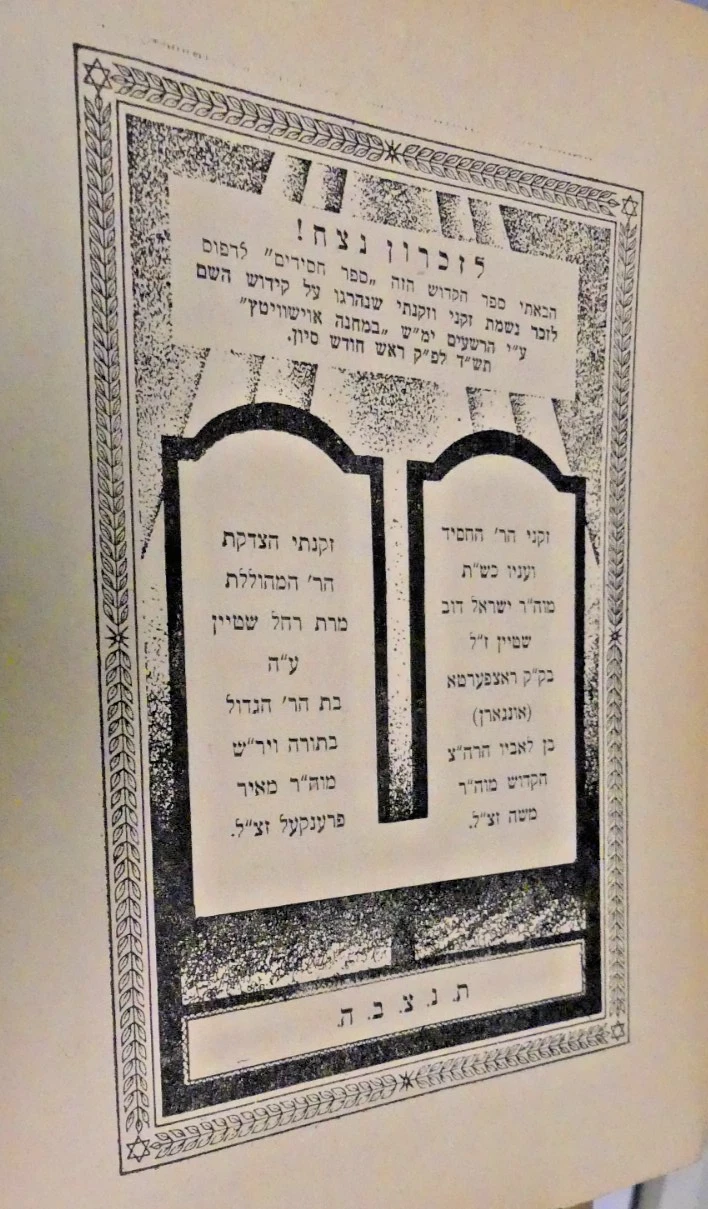 לזכרון נצח!
הבאתי ספר הקדוש הזה „ספר חסידים" לדפוס
לזכר נשמת זקני וזקנתי שנהרגו על קידוש השם
ע"י הרשעים ימ"ש „במחנה אוישוויטץ"
תש"ד לפ"ק ראש חודש סיון.
זקני הר' החסיד
ועניו כש"ת
מוה"ר ישראל דוב
שטיין ז"ל
בק"ק ראצפערטא
(אונגארן)
בן לאביו הרה"צ
הקדוש מוה"ר
משה זצ"ל.
זקנתי הצדקת
הר' המהוללת
מרת רחל שטיין
ע"ה
בת הר' הגדול
בתורה ויר"ש
מוה"ר מאיר
פרענקעל זצ"ל.
ת. נ. צ. ב. ה.